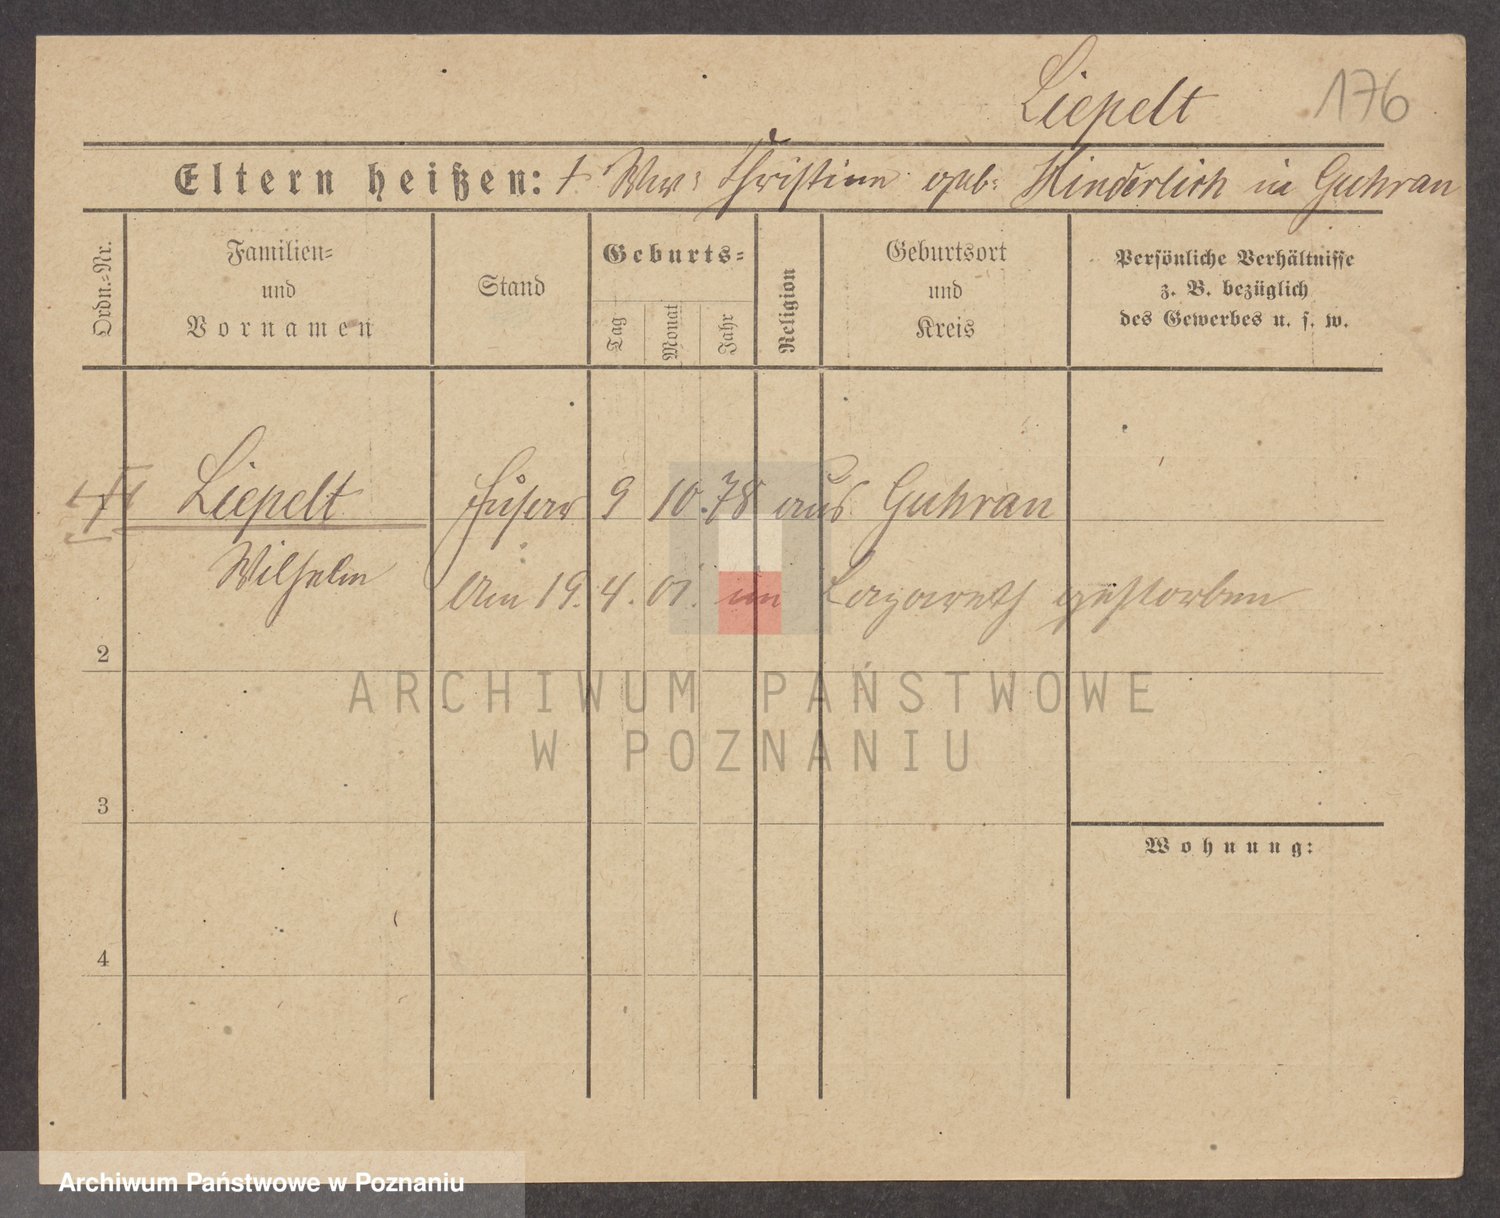 Liepelt 176
Eltern heißen: † Ww: Christine geb: Hinderlich in Guhran
Ordn.=Nr.
Familien=
und
Vornamen
Stand
Geburts=
Tag
Monat
Jahr
Religion
Geburtsort
und
Kreis
Persönliche Verhältnisse
z. B. bezüglich
des Gewerbes u. s. w.
Liepelt Husar 9 10. 78 aus Guhran
Wilhelm Am 19. 4. 01. im Lazareth gestorben
2
ARCHIWUM PAŃSTWOWE
W POZNANIU
3
Wohnung:
4
Archiwum Państwowe w Poznaniu